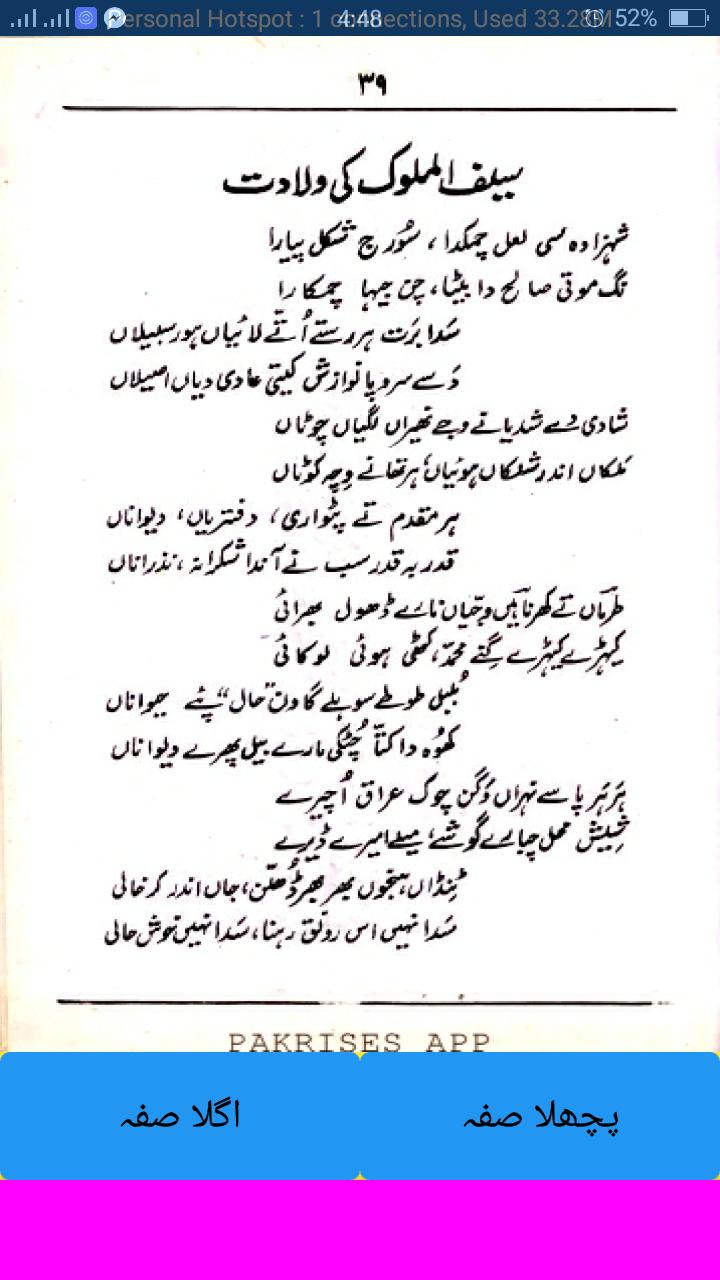 Personal Hotspot : 1 connections, Used 33.28M
4:48
52%
۳۹
سیف الملوک کی ولادت
شہزادہ سی لعل چمکدا، سُورج شکل پیارا
نگ موتی صالح دا بیٹا، چن جیہا چمکارا
سَدا برت ہر رستے اُتے لائیاں ہور سبیلاں
دَسے سروپا نوازش کیتی عادی دیاں اصیلاں
شادی دے شدیانے وجے تھیراں لگیاں چوٹاں
مُلکاں اندر شلکاں ہوئیاں ہر تھانے وچہ کوٹاں
ہر مقدم تے پٹواری، دفتریاں، دیواناں
قدر بہ قدر سب نے آندا شکرانہ، نذراناں
طرماں تے کھرنائیں وجیاں نالے ڈھول بھرائی
کیہڑے کیہڑے گنے محمدؐ، کٹھی ہوئی لوکائی
بُلبل طوطے سوہلے گاون "حال" پئے جواناں
کھُوہ دا کتّا چُٹکی مارے بیل پھرے دیواناں
ہر ہر پاسے نہراں وگن چوک عراق اُچیرے
شیش محل چبارے گوشے
ٹِنڈاں ہنجوں بھر بھر ڈُھلّن، جاں اندر کر خالی
سَدا نہیں اس رونق رہنا، سَدا نہیں خوش حالی
PAKRISES APP
پچھلا صفہ
اگلا صفہ